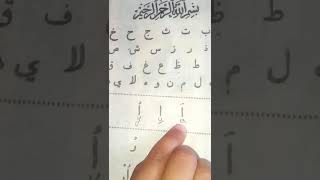 بسم الله الرحمن الرحيم
ب ت ث ج ح خ
ذ ر ز س ش ص
ط ظ ع غ ف ق
ل م ن و ه لا ي
أَ إِ أُ